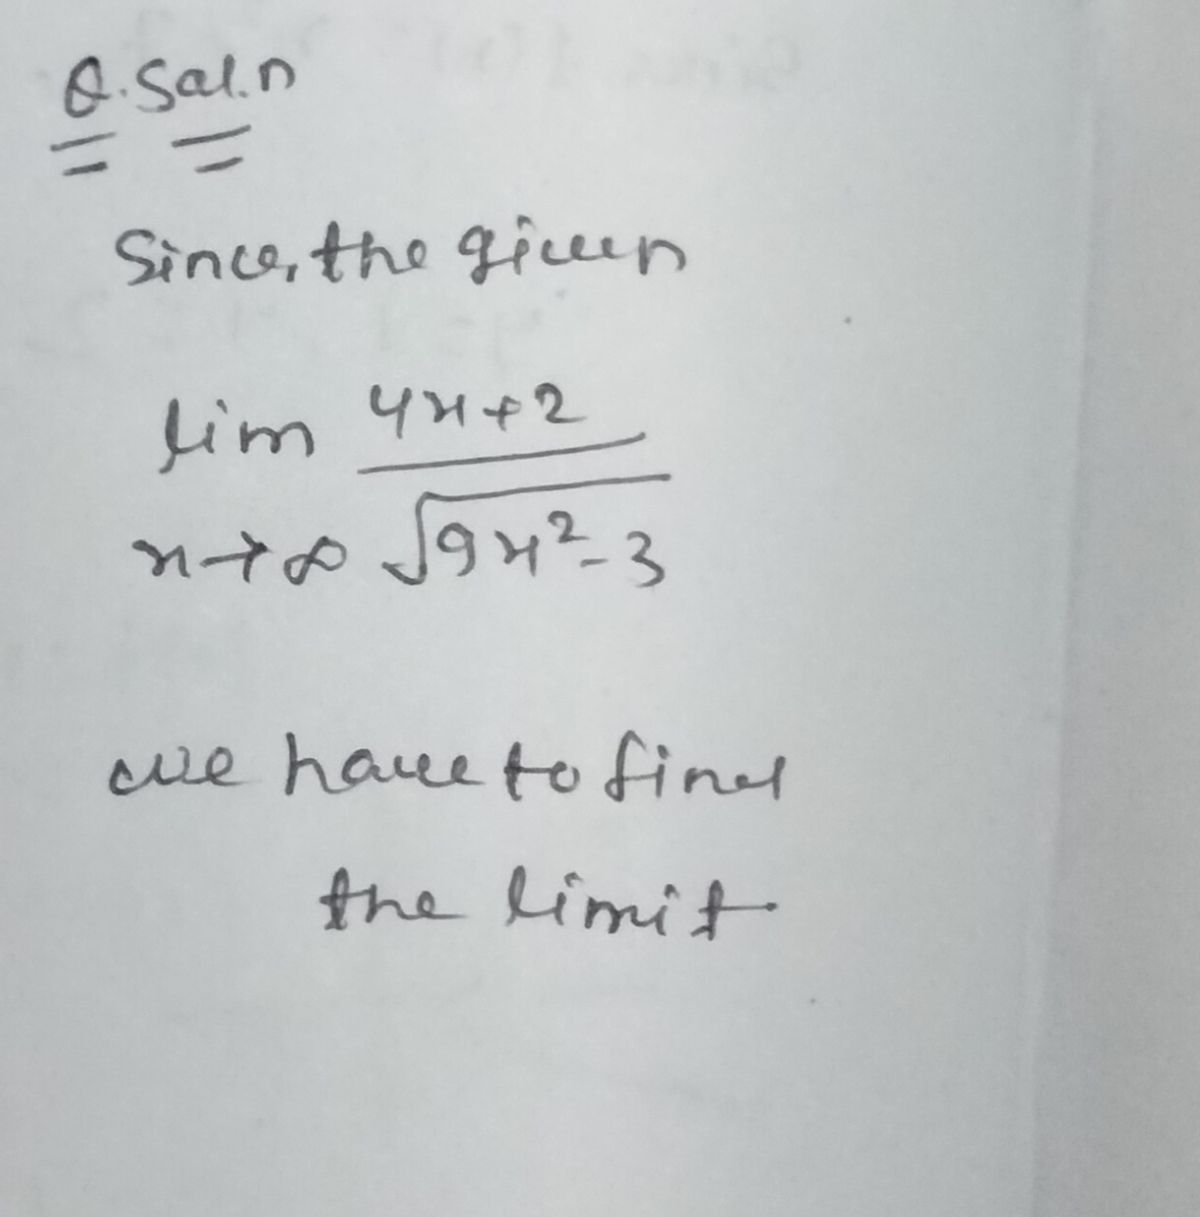 Q. Sol.n
Since, the given
lim 4x+2
x→∞ √9x²-3
we have to find
the limit